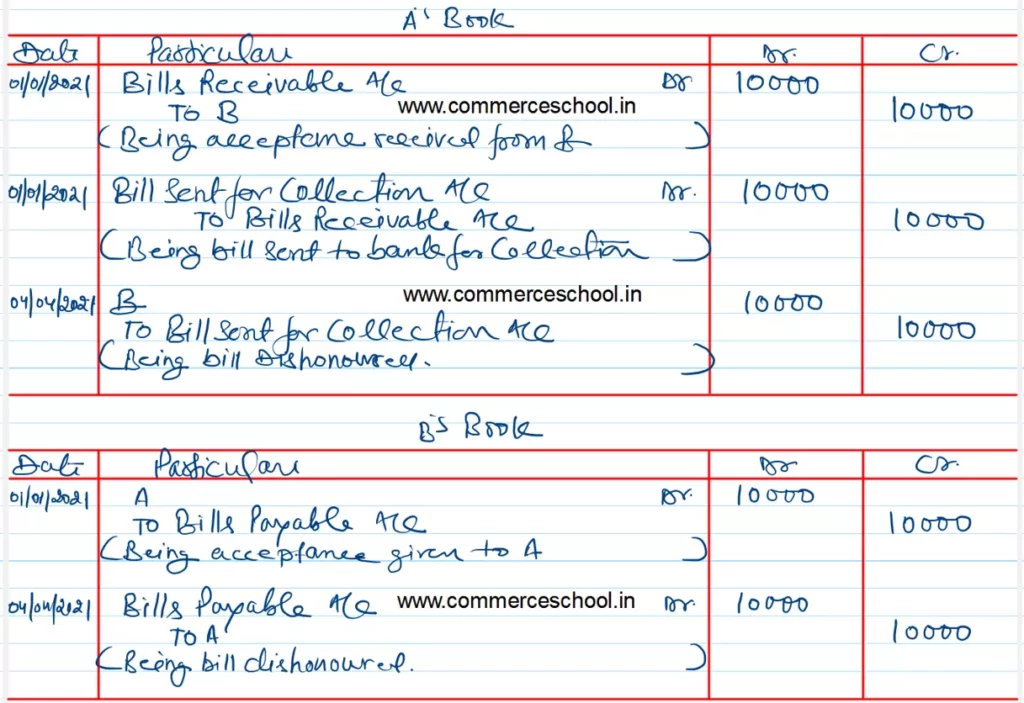 A's Book
Date Particulars Dr. Cr.
01/01/2021 Bills Receivable A/c Dr 10000
To B www.commerceschool.in 10000
(Being acceptance received from B)
01/01/2021 Bill Sent for Collection A/c Dr. 10000
To Bills Receivable A/c 10000
(Being bill sent to bank for Collection)
04/04/2021 B www.commerceschool.in 10000
To Bill Sent for Collection A/c 10000
(Being bill Dishonoured.)
B's Book
Date Particulars Dr Cr.
01/01/2021 A Dr. 10000
To Bills Payable A/c 10000
(Being acceptance given to A)
04/04/2021 Bills Payable A/c www.commerceschool.in Dr. 10000
To A 10000
(Being bill dishonoured.)